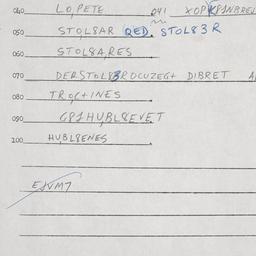 040 LO,PETE 041 XOP
050 STOL8AR QED. STOL83R
060 STOL8A,RES
070 DERSTOL83ROCUZEG+ DIBRET A
080 TROC+INES
090 GP1HUBL8EVET
100 HUBL8ENES